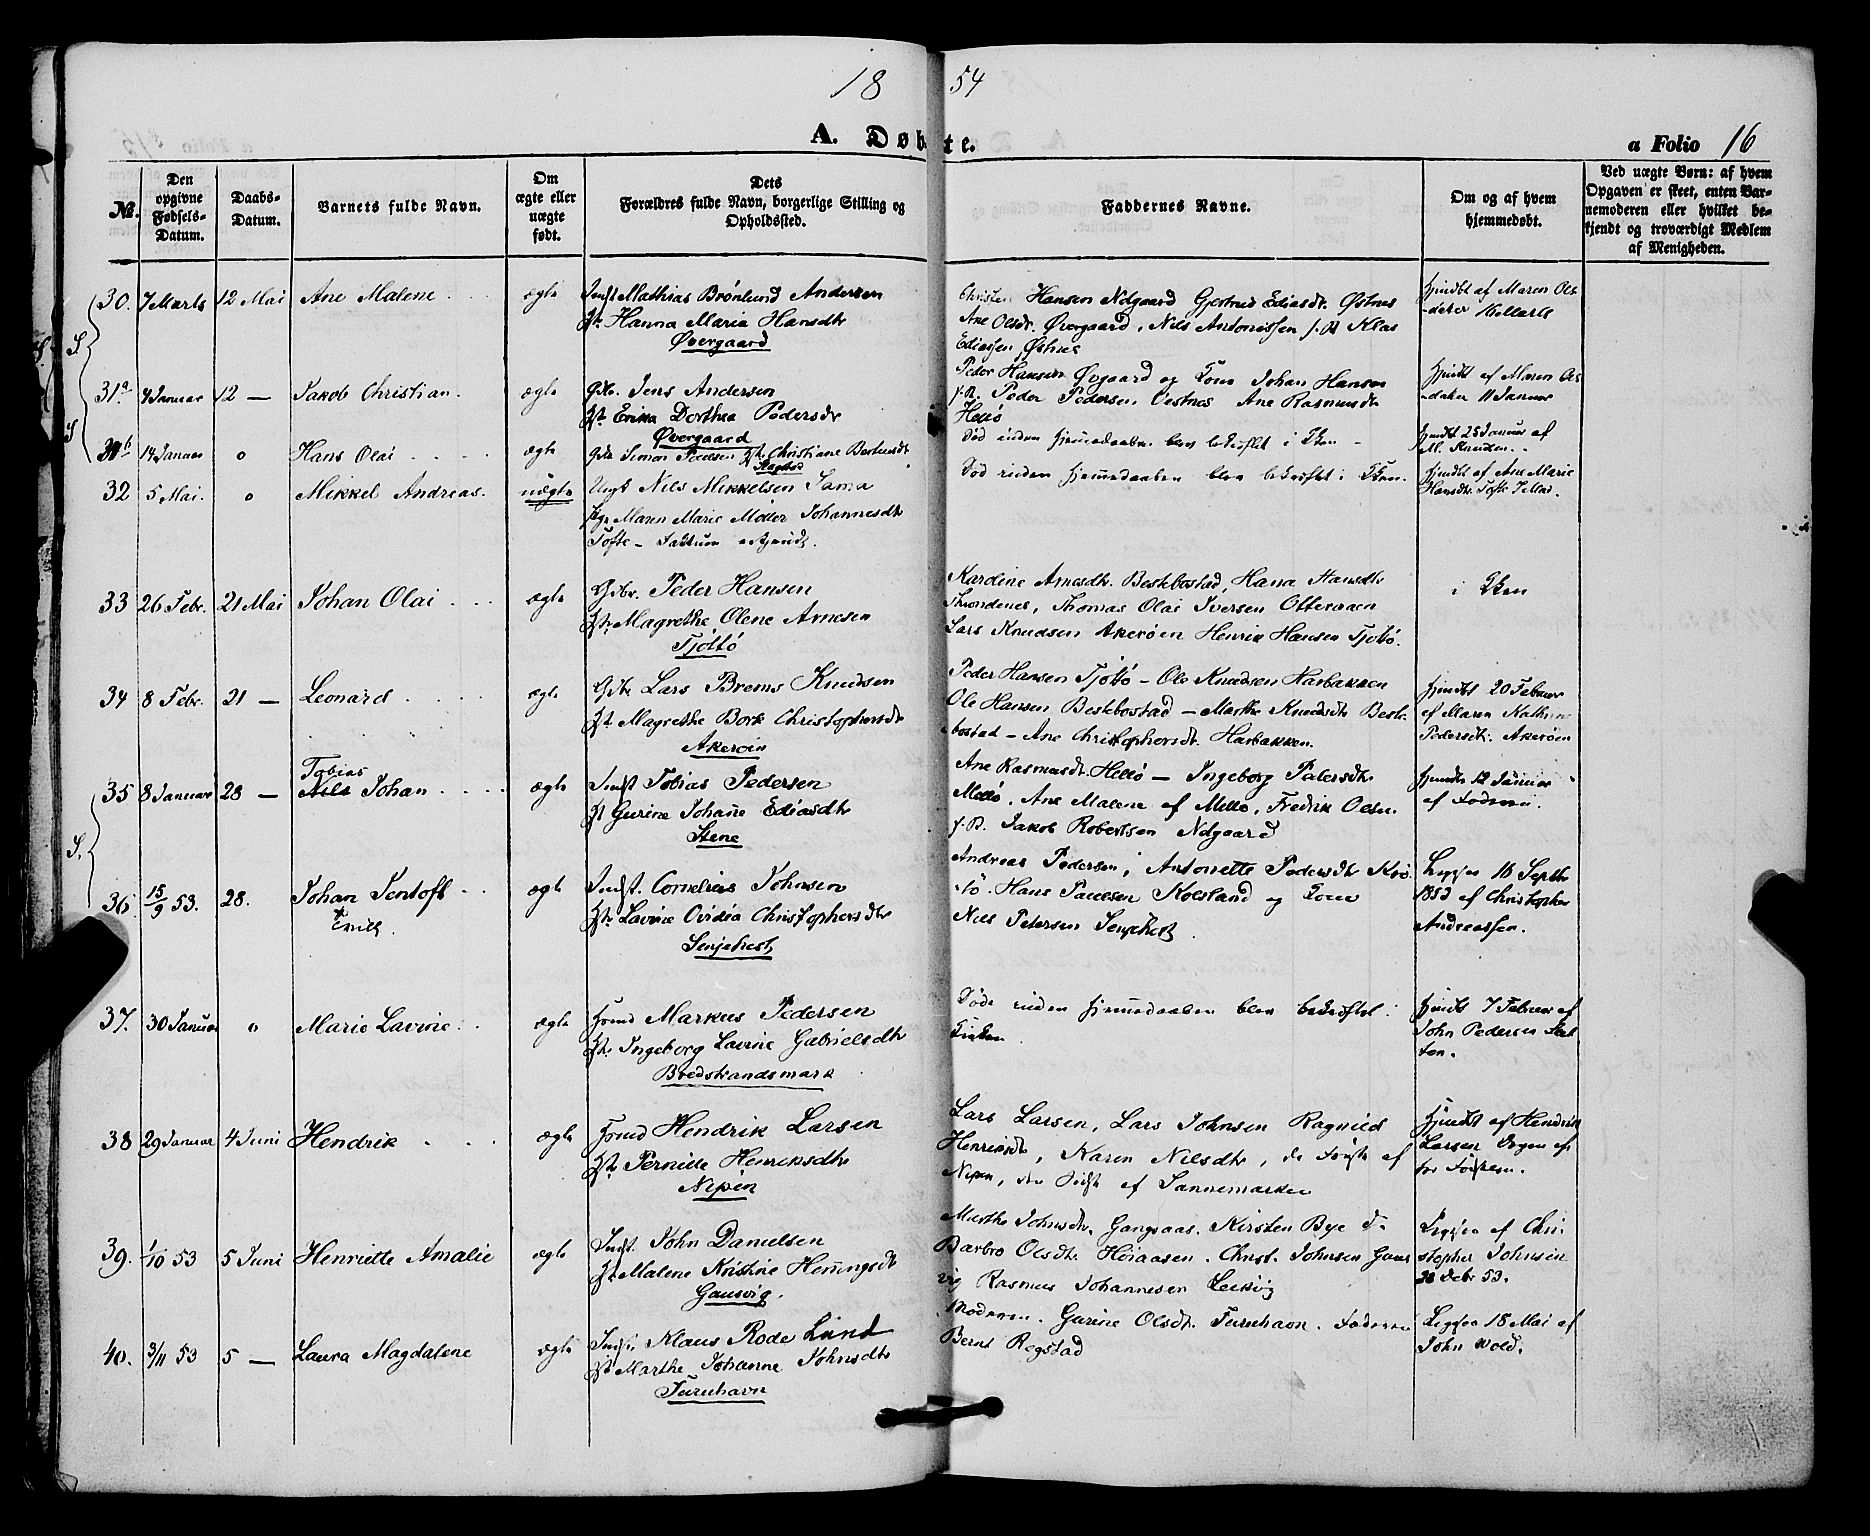 18 54
A. Døbte.
a Folio 16
No.
Den opgivne Fødsels-Datum.
Daabs-Datum.
Barnets fulde Navn.
Om ægte eller uægte født.
Dets Forældres fulde Navn, borgerlige Stilling og Opholdssted.
Faddernes Navne.
Om og af hvem hjemmedøbt.
Ved uægte Børn: af hvem Opgaven er skeet, enten Barnemoderen eller hvilket bekjendt og troværdigt Medlem af Menigheden.
30. 7 Marts 12 Mai Ane Malene ægte
Indst Mathias Brønlund Andersen
Hanna Maria Hansdtr
Øvergaard
Christen Hansen Nolgaard Gjertrud Ediasdt. Østnes
Ane Olsdr. Øvergaard, Nils Antonissen Klas
Ediassen Østnes
hjmdbt af Maren Ols
-dater 16 Marts
31a. 4 Januar 12 — Jakob Christian ægte
Gbr. Jens Andersen
Erika Dorthea Pedersdr
Øvergaard
Peder Hansen Øvgaard og Kone Johan Hansen
Peder Pedersen Vestnes Ane Rasmusdtr
Hellø
hjmdt af Maren Ols
-dater 11 Januar
31b 14 Januar o Hans Olai ægte
Simon Paulsen Christiane Bertusdt
Død inden hjemmedaaben blev bekræftet i Kken
hjmdt 25 Januar af
M. Knudsen.
32 5 Mai. o Mikkel Andreas. uægte
Ungk Nils Mikkelsen Sama
Pige Maren Marie Moller Johannesdtr
Tofte
Død inden hjemmedaaben blev bekræftet i Kken.
hjmdt af Ane Marie
Hansdtr Tofte 7 Mai.
33 26 Febr. 21 Mai Johan Olai ægte
Gbr. Peder Hansen
Magrethe Olene Arnesen
Tjøttø
Kardine Arnesdtr. Bestebostad, Hana Hansdtr
Throndenes, Thomas Olai Iversen Otteraaen
Lars Knudsen Akerøen Henrik Hansen Tjøttø.
i Kken
34 8 Febr. 21 — Leonard ægte
Gbr Lars Brems Knudsen
Magrethe Bork Christophersdtr
Akerøen
Peder Hansen Tjøttø - Ole Knudsen Harbakken
Ole Hansen Bestebostad - Marthe Knudsdtr Beste-
bostad - Ane Christophersdt. Harbakken.
hjmdbt 20 Februar
af Maren Kathrine
Pedersdtr. Akerøen
35 8 Januar 28 — Tobias
Nils Johan ægte
Indst Tobias Pedersen
Gurine Johane Ediasdtr
Stene
Ane Rasmusdt. Hellø - Ingeborg Pedersdtr
Mellø, Ane Malene af Mellø, Fredrik Olsen
Jakob Robertsen Nolgaard
hjmdbt 12 Januar
af Faderen.
36 15/9 53. 28. Johan Tentoft
Emil. ægte
Indst. Cornelius Johnsen
Lavine Ovidia Christophersdtr
Senjehest
Andreas Pedersen, Antonette Pedersdtr Krø-
tø. Hans Paulsen Kolsland og Kone
Nils Petersen Senjehest
Ligesaa 16 Septbr
1853 af Christopher
Andreassen.
37. 30 Januar o Marie Lavine ægte
Hsmd Markus Pedersen
Ingeborg Lavine Gabrielsdtr
Bredstrandsmark
Døde inden hjemmedaaben blev bekræftet i
Kirken
hjmdt 7 Februar af
John Pedersen
38 29 Januar 4 Juni Hendrik ægte
Hsmd Hendrik Larsen
Pernille Henriksdtr
Nipen
Lars Larsen, Lars Johnsen Ragnild
Henriksdt, Karen Nilsdtr, de første af
Nipen, den sidste af Sannemarken
hjmdt af Hendrik
Larsen Dagen ef-
ter Fødselen.
39. 1/10 53 5 Juni Henriette Amalie ægte
Indst. John Danielsen
Malene Kristine Henningsdt
Gausvig.
Marthe Johnsdtr. Gangsaas. Kirsten Bye
Barbro Olsdtr Høiaasen. Christ. Johnsen Gaus
vig Rasmus Johannesen
Ligesaa af Chri
stopher Johnsen
28 Octbr 53.
40. 3/11 53 5 — Laura Magdalene ægte
Indst. Klaus Rode Lund
Marthe Johanne Johnsdtr
Furuhavn
Moderen. Gurine Olsdt. Furuhavn. Faderen
Bernt Rogstad
Ligesaa 18 Mai af
John Wold.